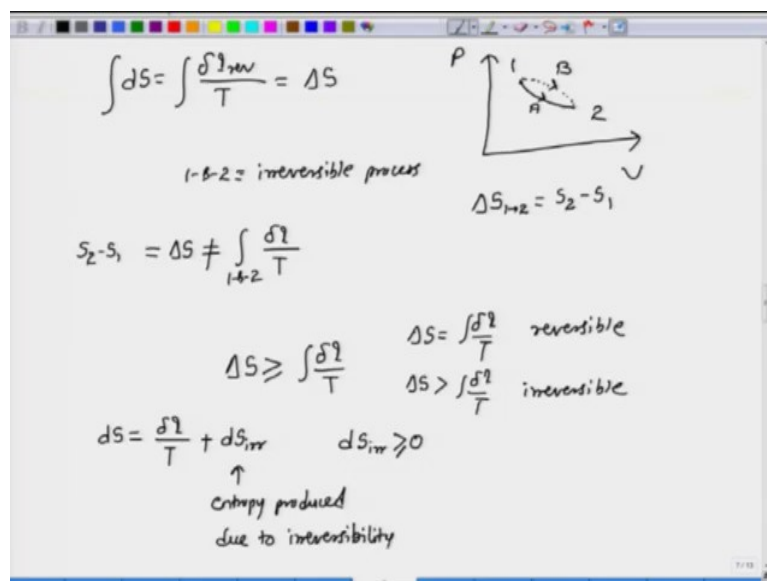 ∫dS = ∫ δq_rev / T = ΔS
P
1
B
A
2
V
1-B-2 = irreversible process
ΔS_1→2 = S_2 - S_1
S_2 - S_1 = ΔS ≠ ∫_1-B-2 δq / T
ΔS ≥ ∫ δq / T
ΔS = ∫ δq / T reversible
ΔS > ∫ δq / T irreversible
dS = δq / T + dS_irr dS_irr ≥ 0
↑
entropy produced
due to irreversibility